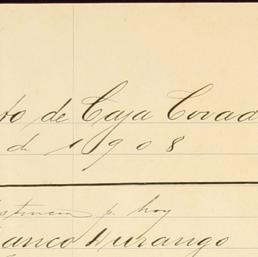 to de Caja Covad
de 1908
istencia p. hoy
anco Durango